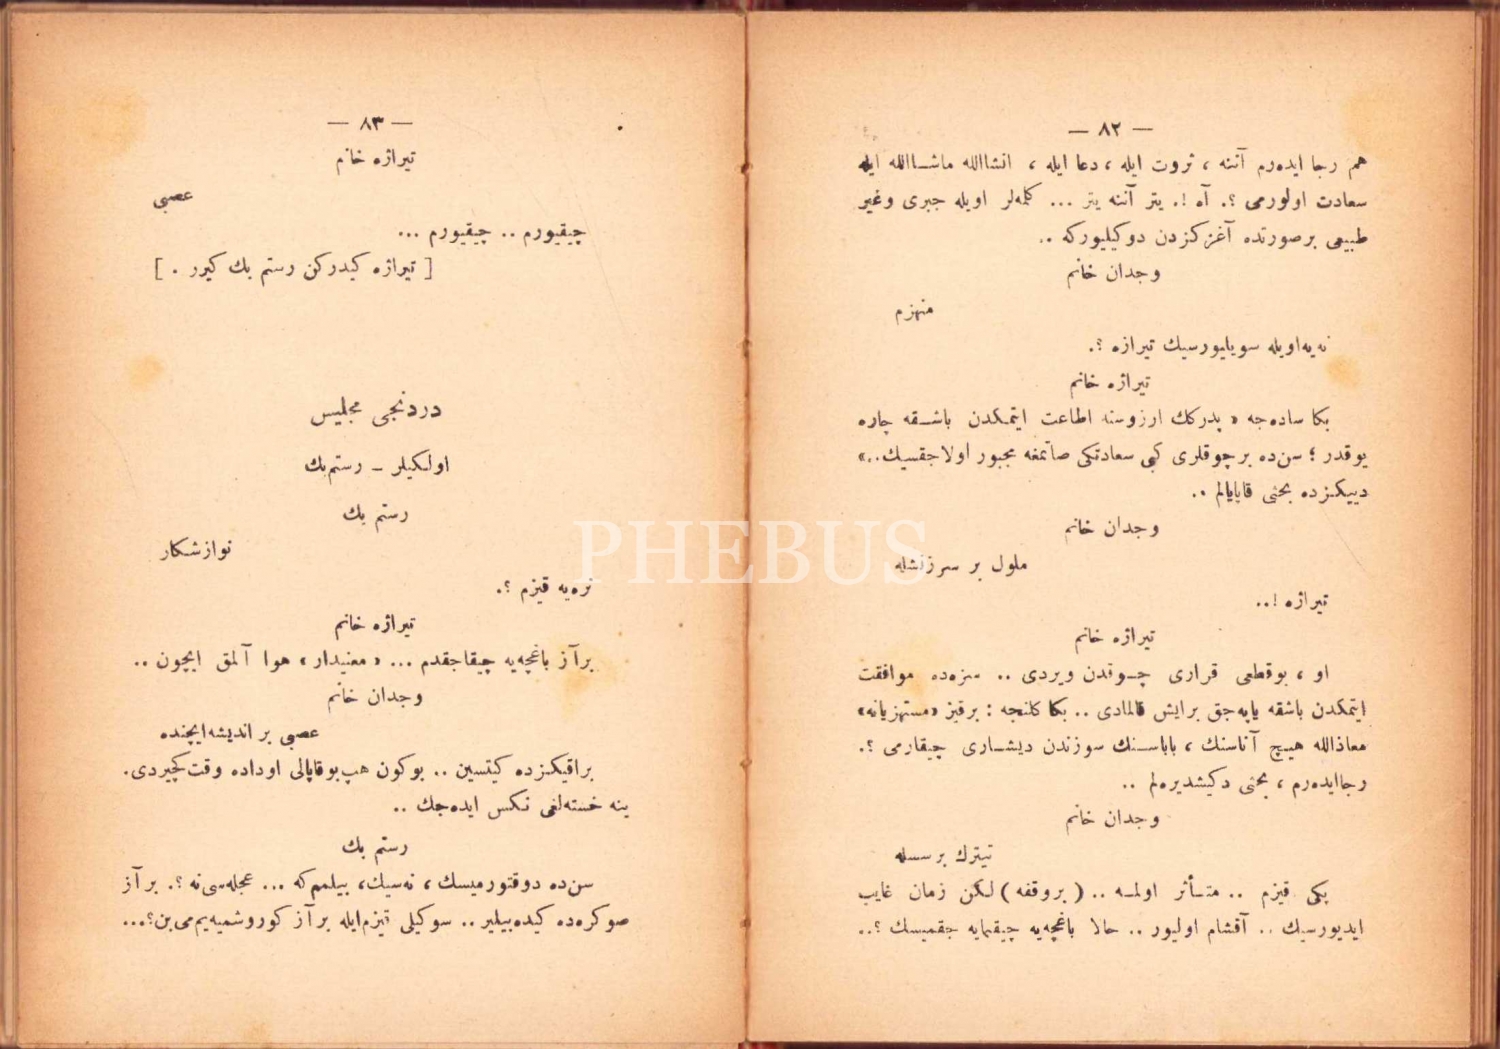 — ٨٢ —
هم رجا ایده‌رم آننه ، ثروت ایله ، دعا ایله ، انشاالله ماشاالله ایله
سعادت اولورمی ؟. آه !. یتر آننه یتر ... کلمه‌لر اویله جبری وغیر
طبیعی برصورتده آغزکزدن دوکیلیورکه ..
وجدان خانم
منهزم
نه‌یه‌اویله سویلیورسیك تیراژه ؟.
تیراژه خانم
بکا ساده‌جه « پدرکك ارزوسنه اطاعت ایتمکدن باشقه چاره
یوقدر ؛ سن‌ده برچوقلری کبی سعادتکی صاتمغه مجبور اولاجقسیك..»
دییکزده بحثی قاپایالم ..
وجدان خانم
ملول بر سرزنشله
تیراژه !..
تیراژه خانم
او ، بوقطعی قراری چوقدن ویردی .. سزه‌ده موافقت
ایتمکدن باشقه یاپه‌جق برایش قالمادی .. بکا کلنجه : برقیز «مستهزیانه»
معاذالله هیچ آناسنك ، باباسنك سوزندن دیشاری چیقارمی ؟.
رجاایده‌رم ، بحثی دکیشدیره‌لم ..
وجدان خانم
تیترك برسسله
پکی قیزم .. متأثر اولمه .. ( بروقفه ) لکن زمان غایب
ایدیورسیك .. آقشام اولیور .. حالا باغچه‌یه چیقمایه جقمیسك ؟..
— ٨٣ —
تیراژه خانم
عصبی
چیقیورم .. چیقیورم ...
[ تیراژه کیدرکن رستم بك کیرر . ]
دردنجی مجلیس
اولکیلر – رستم‌بك
رستم بك
نوازشکار
نره‌یه قیزم ؟.
تیراژه خانم
برآز باغچه‌یه چیقاجقدم ... « معنیدار » هوا آلمق ایچون ..
وجدان خانم
عصبی بر اندیشه‌ایچنده
براقیکزده کیتسین .. بوکون هپ‌بوقاپالی اوداده وقت‌کچیردی.
ینه خسته‌لغی نکس ایده‌جك ..
رستم بك
سن‌ده دوقتورمیسك ، نه‌سیك، بیلمم‌که ... عجله‌سی‌نه ؟. برآز
صوکره‌ده کیده‌بیلیر .. سوکیلی قیزم‌ایله برآز کوروشمیه‌یم‌می‌بن؟...
PHEBUS